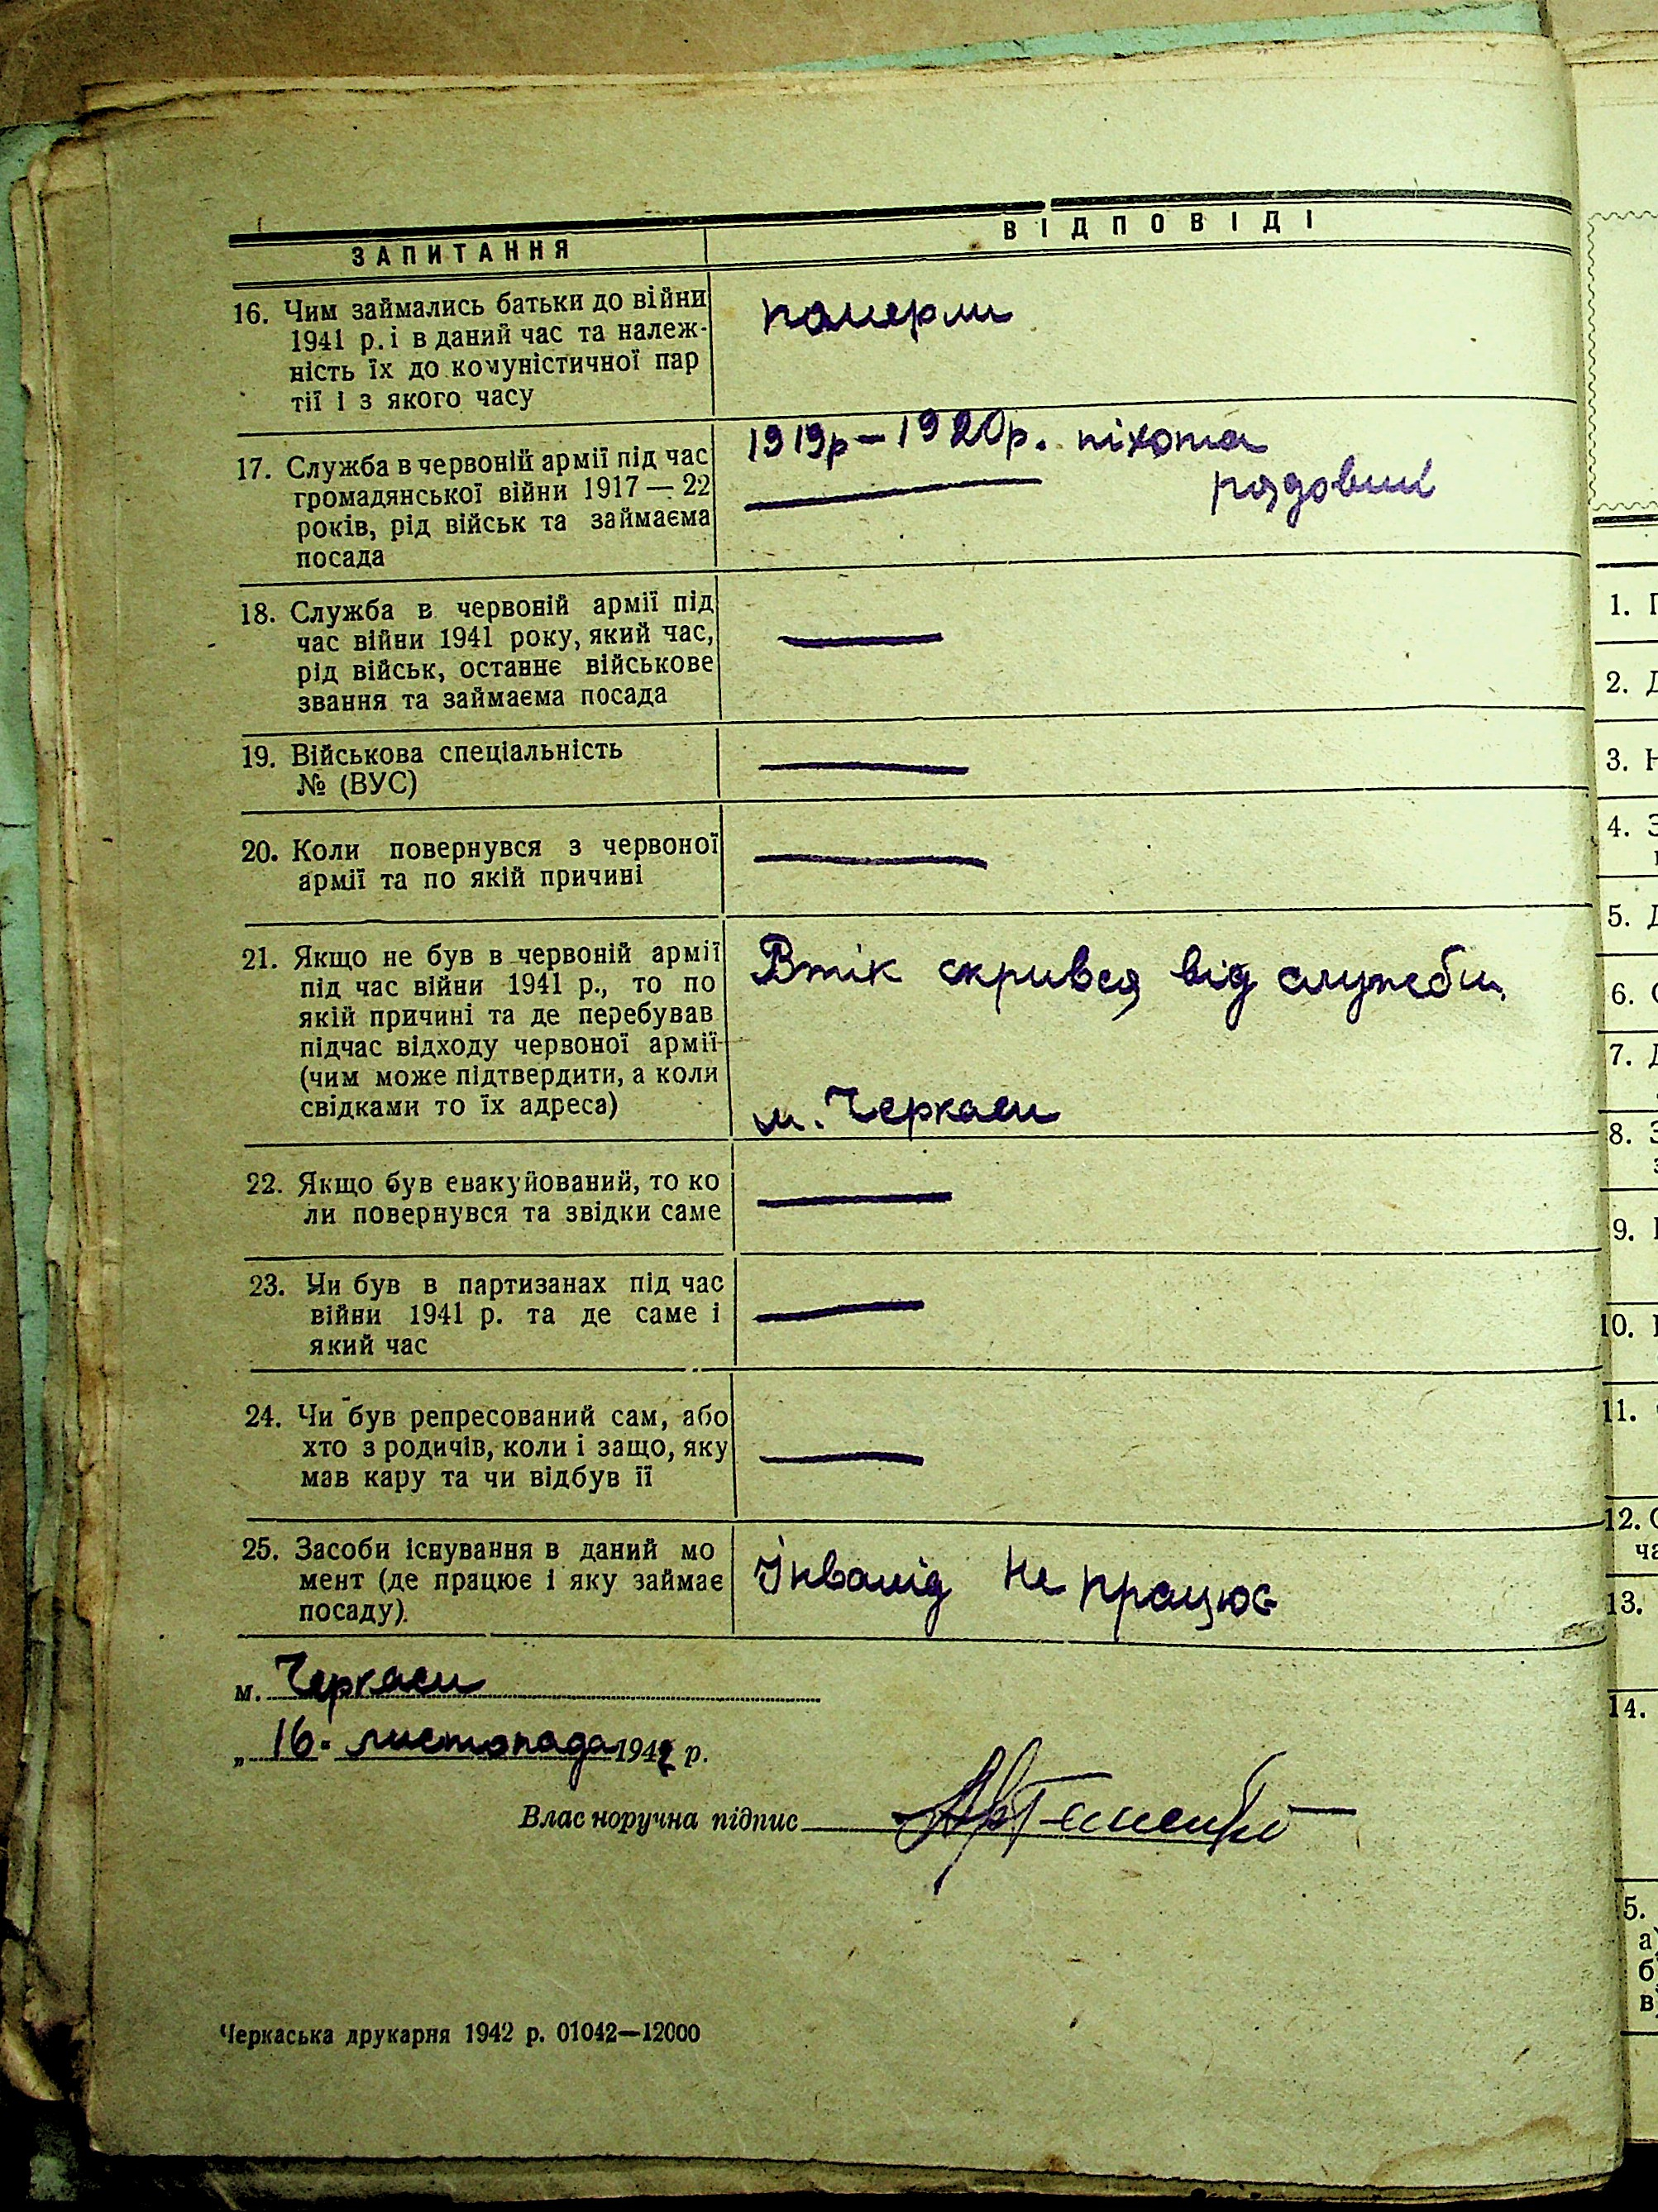 ЗАПИТАННЯ
ВІДПОВІДІ
16. Чим займались батьки до війни
1941 р. і в даний час та належ-
ність їх до комуністичної пар
тії і з якого часу
померли
17. Служба в червоній армії під час
громадянської війни 1917 — 22
років, рід військ та займаєма
посада
1919р – 1920р. піхота
рядовий
18. Служба в червоній армії під
час війни 1941 року, який час,
рід військ, останнє військове
звання та займаєма посада
19. Військова спеціальність
№ (ВУС)
20. Коли повернувся з червоної
армії та по якій причині
21. Якщо не був в червоній армії
під час війни 1941 р., то по
якій причині та де перебував
підчас відходу червоної армії
(чим може підтвердити, а коли
свідками то їх адреса)
Втік скрився від служби,
м. Черкаси
22. Якщо був евакуйований, то ко
ли повернувся та звідки саме
23. Чи був в партизанах під час
війни 1941 р. та де саме і
який час
24. Чи був репресований сам, або
хто з родичів, коли і защо, яку
мав кару та чи відбув її
25. Засоби існування в даний мо
мент (де працює і яку займає
посаду).
Інвалід не працює
м. Черкаси
„ 16. листопада 1942 р.
Влас норучна підпис Артеменко
Черкаська друкарня 1942 р. 01042—12000
1.
2. Д
3. Н
4. З
5. Д
6. С
7. Д
8. З
9.
10.
11.
12. С
ча
13.
14.
5.
а)
б
в